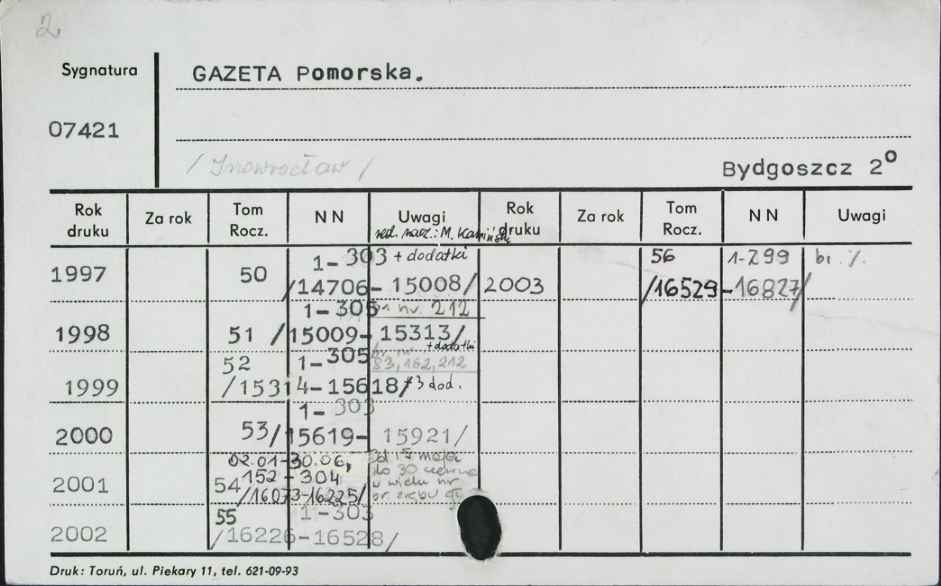 2
Sygnatura
GAZETA Pomorska.
07421
/ Inowrocław /
Bydgoszcz 2°
Rok druku Za rok Tom Rocz. NN Uwagi Rok druku Za rok Tom Rocz. NN Uwagi
red. nacz.: M. Kamiński
1997 50 1-303 + dodatki
/14706-15008/
2003 56 1-299 br. /.
/16529-16827/
1998 51 1-305 nr. 212
/15009-15313/
+dodatki
1999 52 1-305 83, 162, 212
/15314-15618/ +3 dod.
2000 53 1-303
/15619-15921/
2001 54 02.01-30.06,
152-304
/16073-16225/
od 15 maja
do 30 czerwca
w wielu nr
2002 55 1-303
/16226-16528/
Druk: Toruń, ul. Piekary 11, tel. 621-09-93